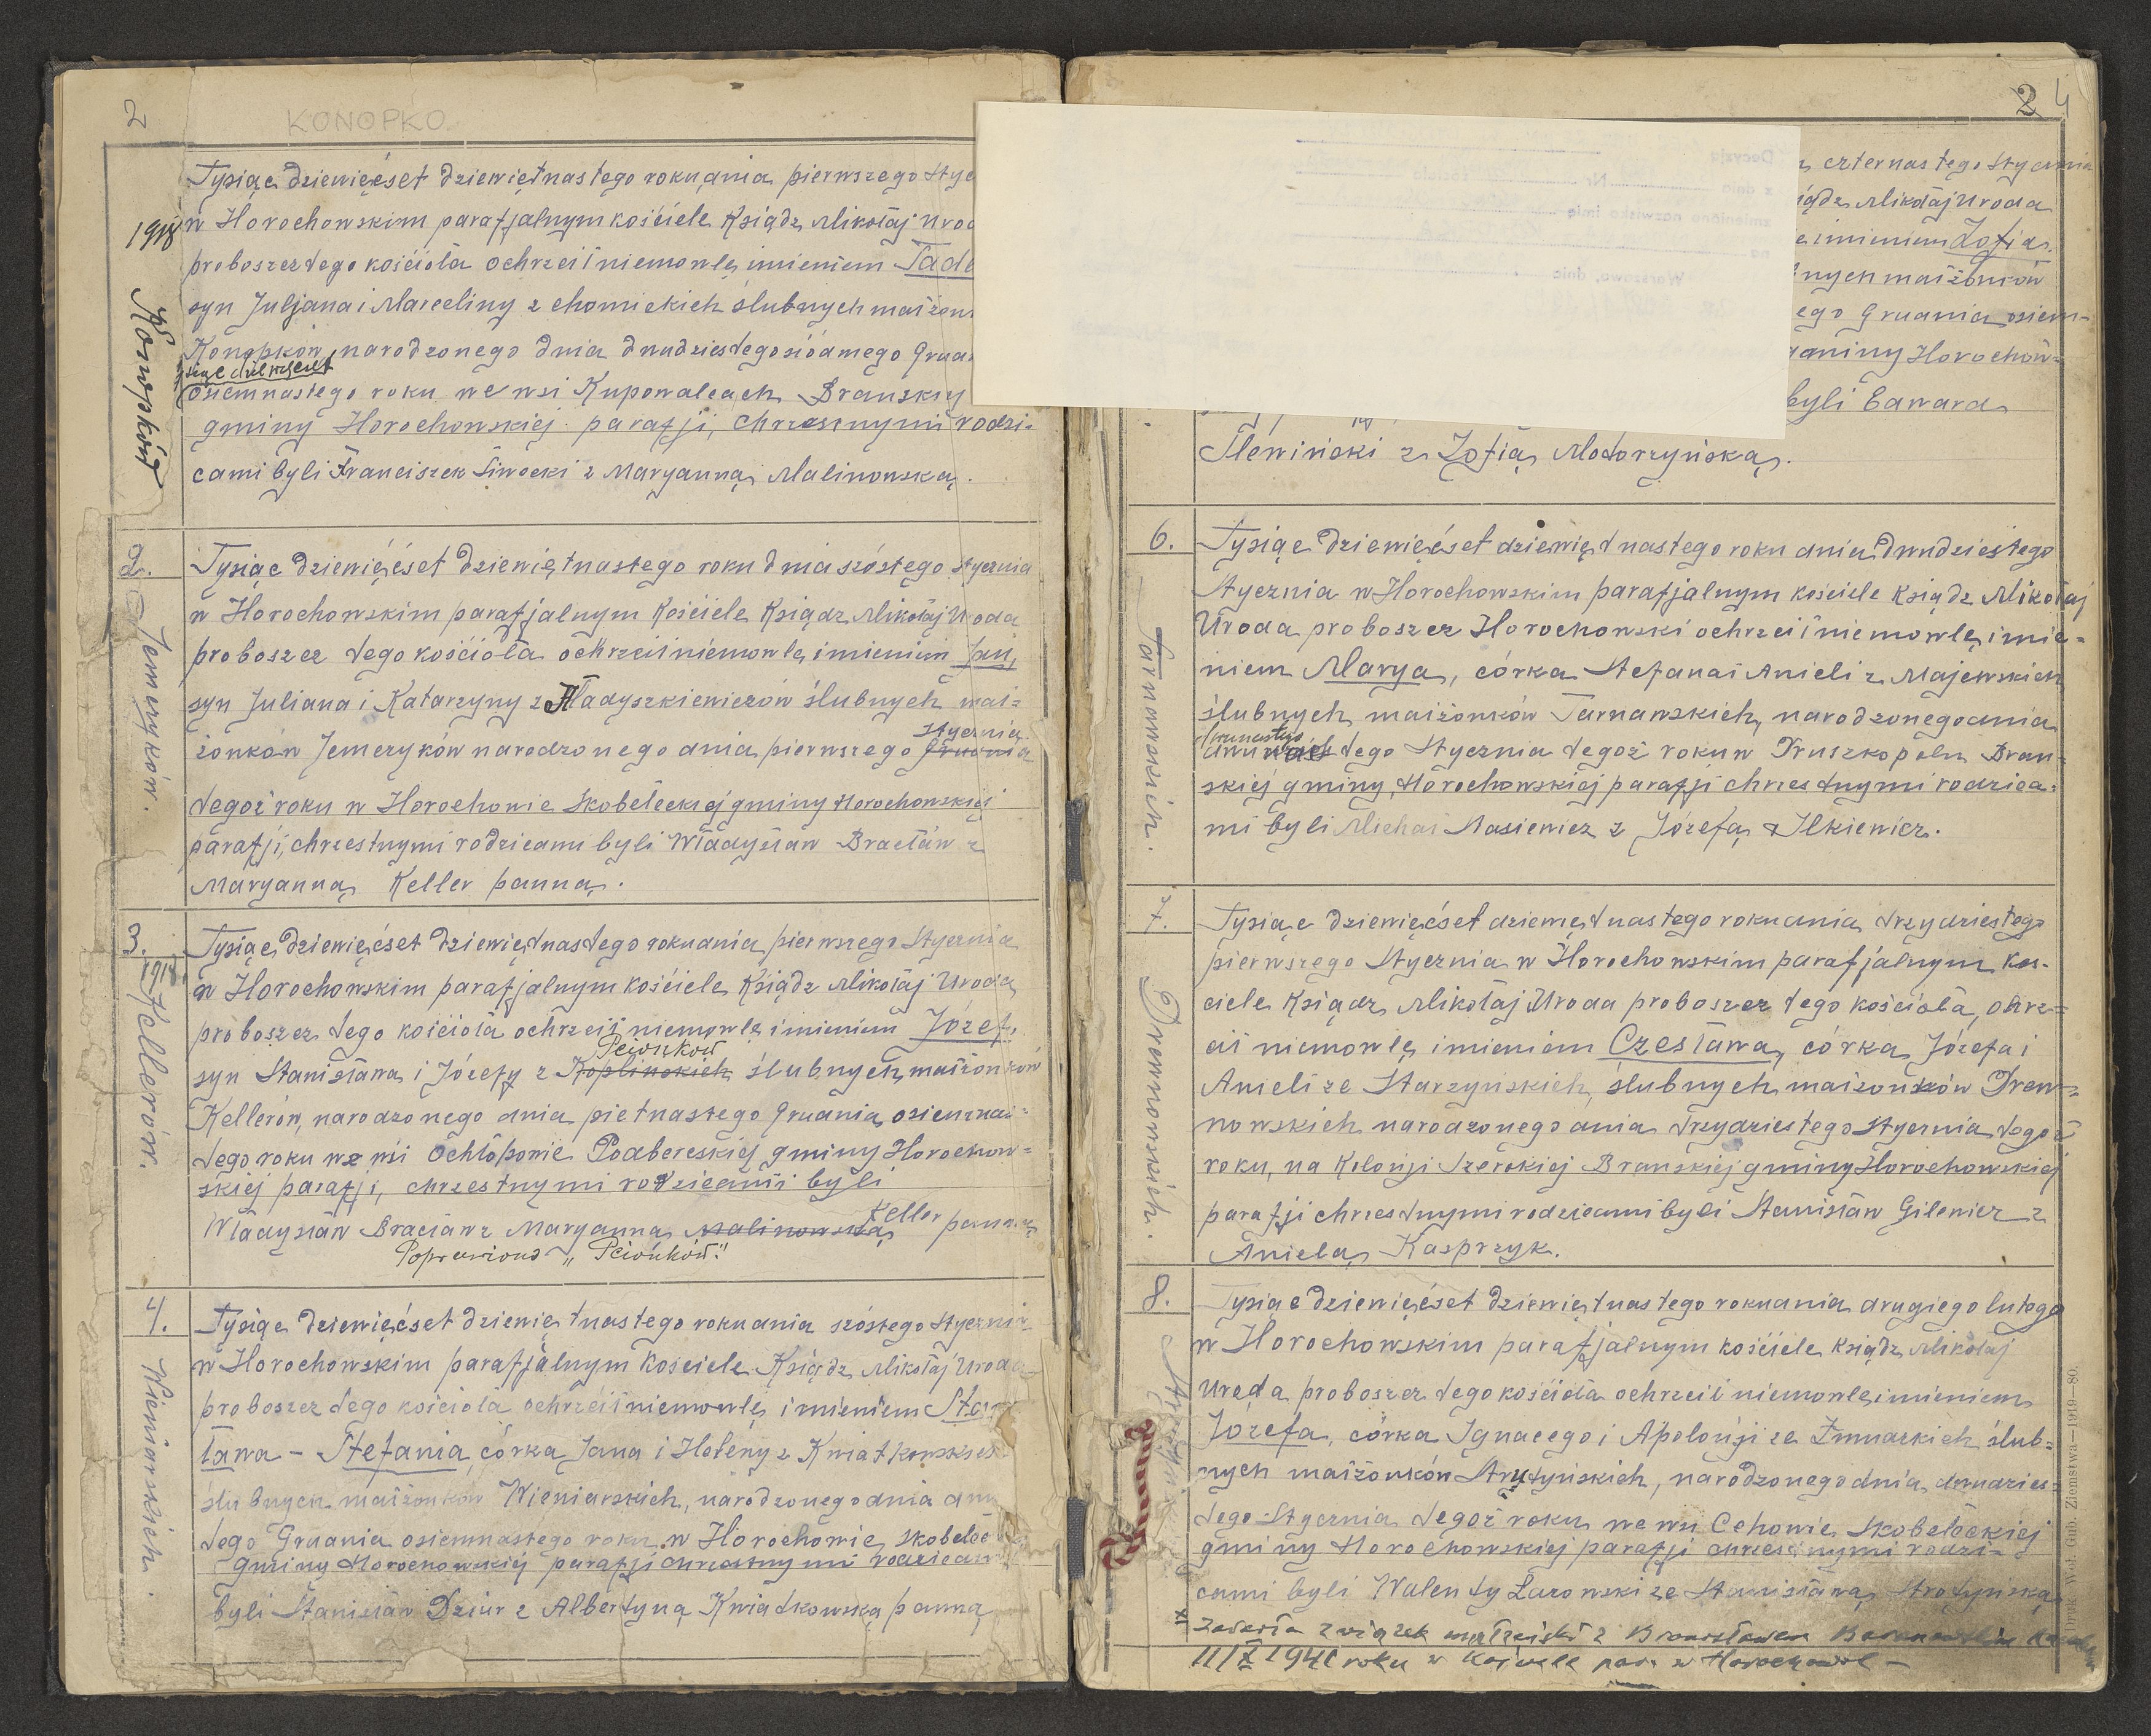 2
KONOPKO
Tysiąc dziewięćset dziewiętnastego roku dnia pierwszego Stye
1918
w Horochowskim parafjalnym kościele Ksiądz Mikołaj Uroc
proboszcz tego kościoła ochrzcił niemowlę imieniem Tade
Konopków
syn Juljana i Marceliny z Chomickich ślubnych małżon
Konopków, narodzonego dnia dwudziestego siódmego Grud
tysiąc dziewięćset
osiemnastego roku we wsi Kupowalcach Branskiej
gminy Horochowskiej parafji, chrzestnymi rodzi-
cami byli Franciszek Siwocki z Maryanną Malinowską.
2.
Jemeryków.
Tysiąc dziewięćset dziewiętnastego roku dnia szóstego stycznia
w Horochowskim parafjalnym Kościele Ksiądz Mikołaj Uroda
proboszcz tego kościoła ochrzcił niemowlę imieniem Jan,
syn Juliana i Katarzyny z Hładyszkiewiczów ślubnych mał=
stycznia
żonków Jemeryków narodzonego dnia pierwszego Grudnia
tegoż roku w Horochowie Skobełeckiej gminy Horochowskiej
parafji, chrzestnymi rodzicami byli Władysław Bracław z
Maryanną Keller panną.
3.
1918
Kellerów.
Tysiąc dziewięćset dziewiętnastego roku dnia pierwszego Stycznia
w Horochowskim parafjalnym kościele Ksiądz Mikołaj Uroda
proboszcz tego kościoła ochrzcił niemowlę imieniem Józef,
Pcionków
syn Stanisława i Józefy z Koplinskich ślubnych małżonków
Kellerów, narodzonego dnia pietnastego Grudnia osiemnas=
tego roku we wsi Ochłopowie Podbereskiej gminy Horochow=
skiej parafji, chrzestnymi rodzicami byli
Keller
Władysław Bracław z Maryanną Malinowską panną
Poprawiono „Pcionków"
4.
Wieniarskich.
Tysiąc dziewięćset dziewiętnastego roku dnia szóstego Stycznia
w Horochowskim parafjalnym Kościele Ksiądz Mikołaj Uroda
proboszcz tego kościoła ochrzcił niemowlę imieniem Stan
ława - Stefania, córka Jana i Heleny z Kwiatkowskich
ślubnych małżonków Wieniarskich, narodzonego dnia dwu
tego Grudnia osiemnastego roku w Horochowie Skobełec
gminy Horochowskiej parafji chrzestnymi rodzicami
byli Stanisław Dziur z Albertyną Kwiatkowską panną
2 4
czternastego Stycznia
iądz Mikołaj Uroda
e imieniem Zofia
nych małżonków
ego Grudnia osiem-
gminy Horochow=
byli Edward
Decyzją
z dnia Nr
zmieniono nazwisko imię
na
Warszawa, dnia
Tlewiński z Zofią Modorzyńską.
6.
Tarnawskich.
Tysiąc dziewięćset dziewiętnastego roku dnia dwudziestego
Stycznia w Horochowskim parafjalnym kościele Ksiądz Mikołaj
Uroda proboszcz Horochowski ochrzcił niemowlę imie=
niem Marya, córka Stefana i Anieli z Majewskich
ślubnych małżonków Tarnawskich, narodzonego dnia
dwunastego
tego Stycznia tegoż roku w Pruszkopolu Bran=
skiej gminy, Horochowskiej parafji chrzestnymi rodzica=
mi byli Michał Stasiewicz z Józefą Ilkiewicz.
7.
Drewnowskich.
Tysiąc dziewięćset dziewiętnastego roku dnia trzydziestego
pierwszego Stycznia w Horochowskim parafjalnym koś-
ciele Ksiądz Mikołaj Uroda proboszcz tego kościoła, ochrz=
cił niemowlę imieniem Czesława, córka Józefa i
Anieli ze Starzyńskich, ślubnych małżonków Drew=
nowskich narodzonego dnia trzydziestego Stycznia tegoż
roku, na Kolonji Szerokiej Branskiej gminy Horochowskiej
parafji chrzestnymi rodzicami byli Stanisław Gilewicz z
Anielą Kasprzyk.
8.
Tysiąc dziewięćset dziewiętnastego roku dnia drugiego lutego
w Horochowskim parafjalnym kościele Ksiądz Mikołaj
Uroda proboszcz tego kościoła ochrzcił niemowlę imieniem
Józefa, córka Ignacego i Apolonji ze Żmudzkich ślub=
nych małżonków Strutyńskich, narodzonego dnia dwudzies=
tego Stycznia tegoż roku we wsi Cehowie Skobełeckiej
gminy Horochowskiej parafji chrzestnymi rodzi=
cami byli Walenty Łazowski ze Stanisławą Strotyńską
zawarła związek małżeński z Bronisławem
11/X 1941 roku w kościele par. w Horochowie -
Druk. Woł. Gub. Ziemstwa—1919—80.